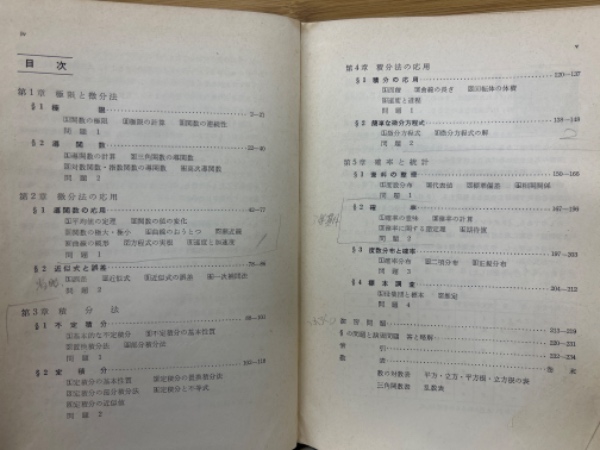 iv
目次
第1章 極限と微分法
§1 極限 2—21
①関数の極限 ②極限の計算 ③関数の連続性
問題 1
§2 導関数 22—40
①導関数の計算 ②三角関数の導関数
③対数関数・指数関数の導関数 ④高次導関数
問題 2
第2章 微分法の応用
§1 導関数の応用 42—77
①平均値の定理 ②関数の値の変化
③関数の極大・極小 ④曲線のおうとつ
曲線の概形 方程式の実根 速度と加速度
問題 1
§2 近似式と誤差
近似式 近似式の誤差
問題 2
第3章 積分法
§1 不定積分
不定積分の基本性質
置換積分法 部分積分法
問題 1
§2 定積分
①定積分の基本性質 ②定積分の置換積分法
定積分の部分積分法 定積分と不等式
定積分の近似値
問題 2
v
第4章 積分法の応用
§1 積分の応用 120—137
①面積 ②曲線の長さ ③回転体の体積
④速度と道程
問題 1
§2 簡単な微分方程式 138—148
①微分方程式 ②微分方程式の解
問題 2
第5章 確率と統計
§1 資料の整理 150—166
①度数分布 ②代表値 ③標準偏差 ④相関関係
問題 1
§2 確率 167—196
①確率の意味 ②確率の計算
③確率に関する定理 ④期待値
問題 2
§3 度数分布と確率 197—203
①確率分布 ②二項分布 ③正規分布
問題 3
§4 標本調査 204—212
①母集団と標本
問題 4
練習問題
§の問題と練習問題 答と略解
索引 232—234
数表 巻末
数の対数表 平方・立方・平方根・立方根の表
三角関数表 乱数表